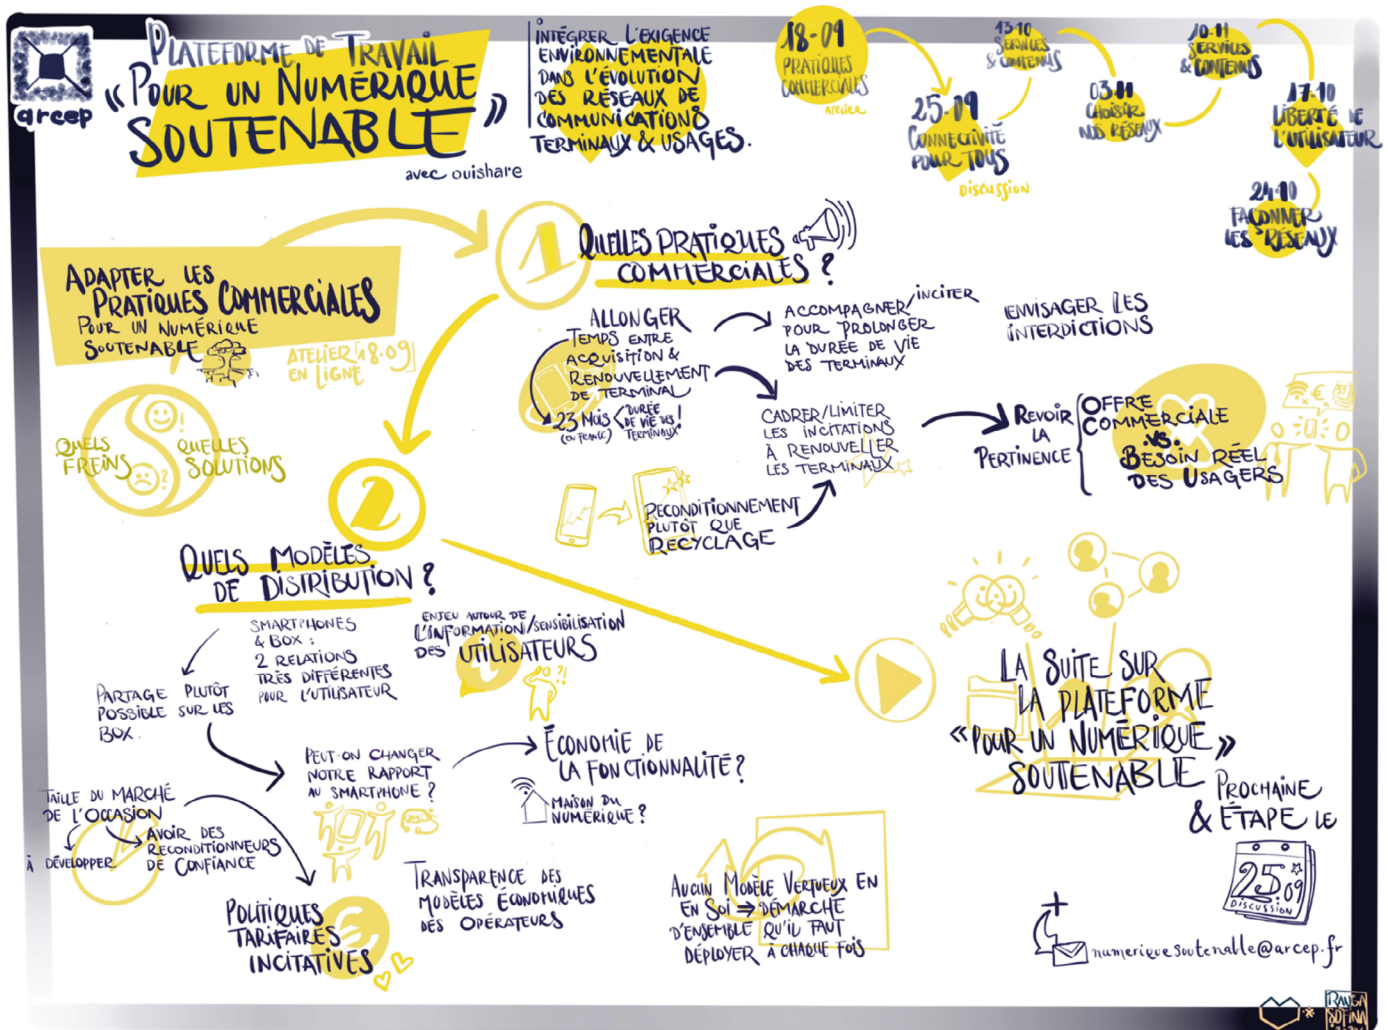 arcep
PLATEFORME DE TRAVAIL
« POUR UN NUMÉRIQUE
SOUTENABLE »
avec ouishare
INTÉGRER L'EXIGENCE
ENVIRONNEMENTALE
DANS L'ÉVOLUTION
DES RÉSEAUX DE
COMMUNICATIONS
TERMINAUX & USAGES.
18-09
PRATIQUES
COMMERCIALES
ATELIER
25-09
CONNECTIVITÉ
POUR TOUS
DISCUSSION
13-10
SERVICES
& CONTENUS
03-11
CHOISIR
NOS RÉSEAUX
10-11
SERVICES
& CONTENUS
17-10
LIBERTÉ DE
L'UTILISATEUR
24-10
FAÇONNER
LES RÉSEAUX
ADAPTER LES
PRATIQUES COMMERCIALES
POUR UN NUMÉRIQUE
SOUTENABLE
ATELIER [18-09]
EN LIGNE
QUELS
FREINS
QUELLES
SOLUTIONS
1
QUELLES PRATIQUES
COMMERCIALES ?
ALLONGER
TEMPS ENTRE
ACQUISITION &
RENOUVELLEMENT
DE TERMINAL
23 MOIS < DURÉE
DE VIE DES
TERMINAUX !
(EN FRANCE)
ACCOMPAGNER/INCITER
POUR PROLONGER
LA DURÉE DE VIE
DES TERMINAUX
ENVISAGER LES
INTERDICTIONS
CADRER/LIMITER
LES INCITATIONS
À RENOUVELLER
LES TERMINAUX
RECONDITIONNEMENT
PLUTÔT QUE
RECYCLAGE
REVOIR
LA
PERTINENCE
OFFRE
COMMERCIALE
.VS.
BESOIN RÉEL
DES USAGERS
2
QUELS MODÈLES
DE DISTRIBUTION ?
SMARTPHONES
& BOX :
2 RELATIONS
TRÈS DIFFÉRENTES
POUR L'UTILISATEUR
ENJEU AUTOUR DE
L'INFORMATION/SENSIBILISATION
DES UTILISATEURS
PARTAGE PLUTÔT
POSSIBLE SUR LES
BOX.
PEUT-ON CHANGER
NOTRE RAPPORT
AU SMARTPHONE ?
ÉCONOMIE DE
LA FONCTIONNALITÉ ?
MAISON DU
NUMÉRIQUE ?
TAILLE DU MARCHÉ
DE L'OCCASION
À DÉVELOPPER
AVOIR DES
RECONDITIONNEURS
DE CONFIANCE
POLITIQUES
TARIFAIRES
INCITATIVES
TRANSPARENCE DES
MODÈLES ÉCONOMIQUES
DES OPÉRATEURS
AUCUN MODÈLE VERTUEUX EN
EN SOI ⇒ DÉMARCHE
D'ENSEMBLE QU'IL FAUT
DÉPLOYER À CHAQUE FOIS
LA SUITE SUR
LA PLATEFORME
« POUR UN NUMÉRIQUE »
SOUTENABLE
& PROCHAINE
ÉTAPE LE
25.09
DISCUSSION
numeriquesoutenable@arcep.fr